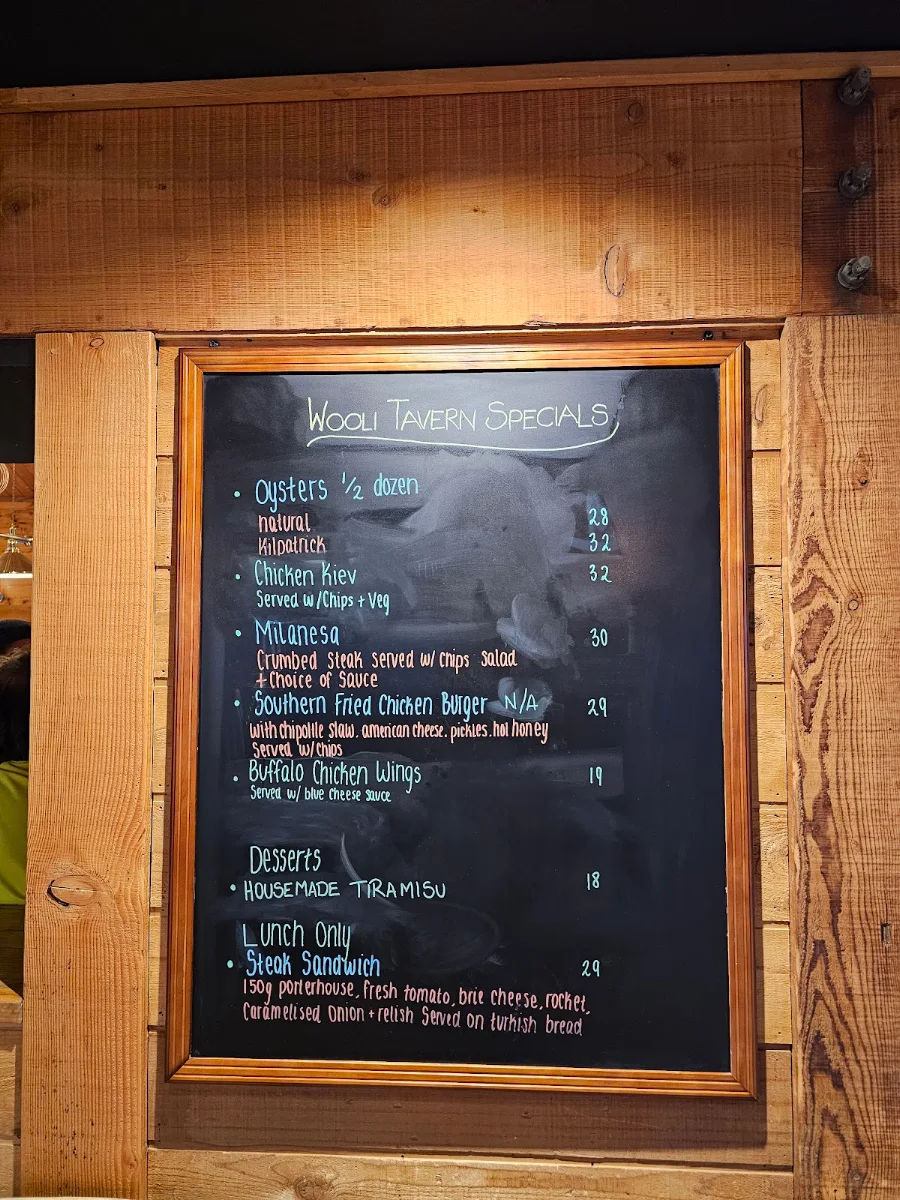 WOOLI TAVERN SPECIALS
• Oysters 1/2 dozen
natural 28
Kilpatrick 32
• Chicken Kiev 32
Served w/Chips + Veg
• Milanesa 30
Crumbed Steak Served w/ Chips Salad
+ Choice of Sauce
• Southern Fried Chicken Burger N/A 29
with chipotle slaw, american cheese, pickles, hot honey
Served w/chips
• Buffalo Chicken Wings 19
Served w/ blue cheese sauce
Desserts
• HOUSEMADE TIRAMISU 18
Lunch Only
• Steak Sandwich 29
150g porterhouse, fresh tomato, brie cheese, rocket,
Caramelised Onion + relish Served on turkish bread